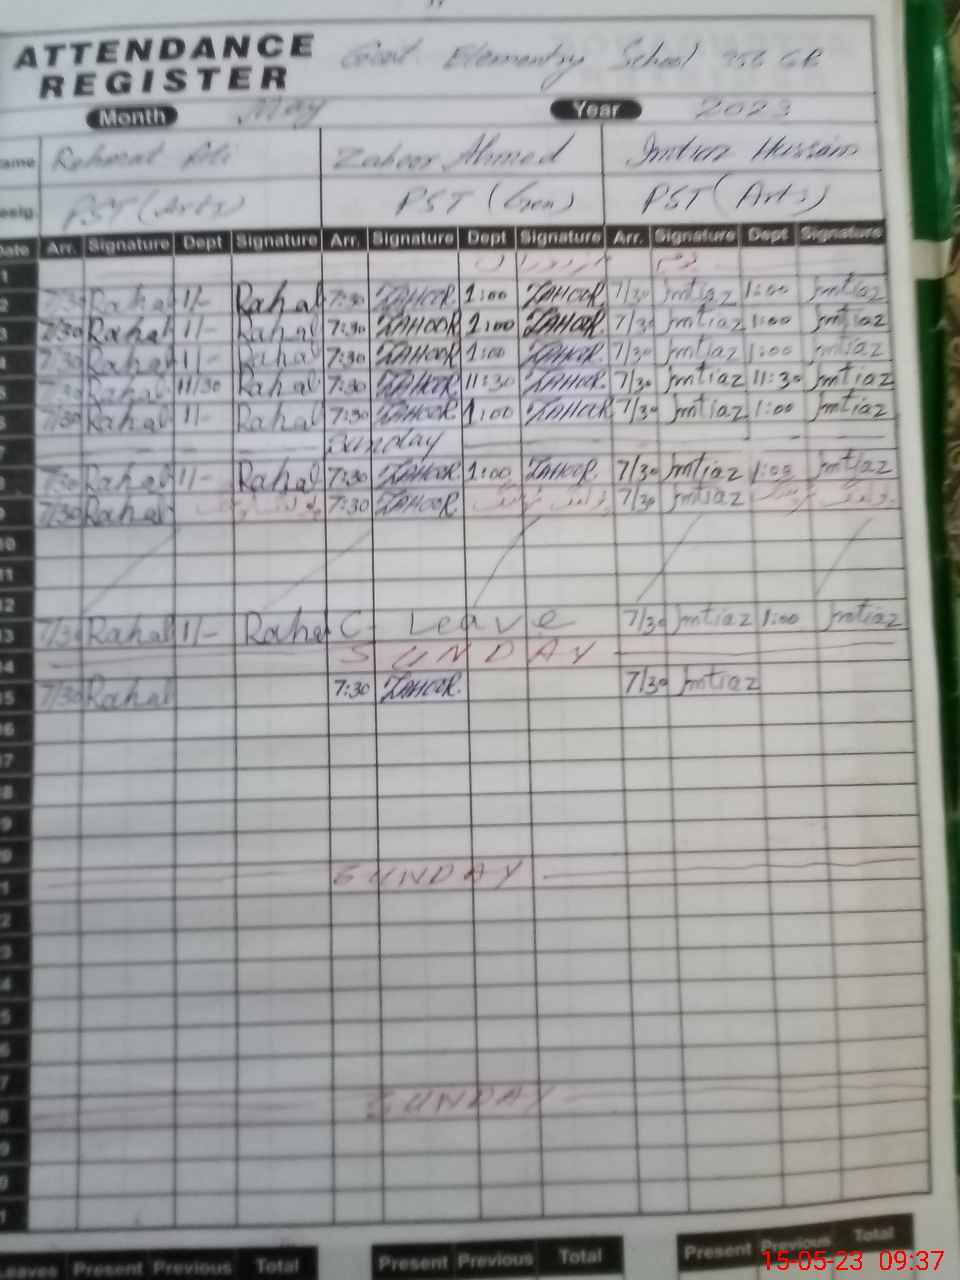 ATTENDANCE REGISTER Govt. Elementry School 356 GB
Month May Year 2023
ame Rehmat Ali Zahoor Ahmed Imtiaz Hussain
esig. PST (Arts) PST (Gen) PST (Arts)
Date Arr. Signature Dept Signature Arr. Signature Dept Signature Arr. Signature Dept Signature
1
2 7/30 Rahal 1/- Rahal 7:30 ZAHOOR 1:00 ZAHOOR 7/30 Imtiaz 1:00 Imtiaz
3 7/30 Rahal 1/- Rahal 7:30 ZAHOOR 1:00 ZAHOOR 7/30 Imtiaz 1:00 Imtiaz
4 7/30 Rahal 1/- Rahal 7:30 ZAHOOR 1:00 ZAHOOR 7/30 Imtiaz 1:00 Imtiaz
5 7/30 Rahal 11/30 Rahal 7:30 ZAHOOR 11:30 ZAHOOR 7/30 Imtiaz 11:30 Imtiaz
6 7/30 Rahal 1/- Rahal 7:30 ZAHOOR 1:00 ZAHOOR 7/30 Imtiaz 1:00 Imtiaz
7 Sunday
8 7/30 Rahal 1/- Rahal 7:30 ZAHOOR 1:00 ZAHOOR 7/30 Imtiaz 1:00 Imtiaz
9 7/30 Rahal 7:30 ZAHOOR 7/30 Imtiaz
10
11
12
13 7/30 Rahal 1/- Rahal C- Leave 7/30 Imtiaz 1:00 Imtiaz
14 SUNDAY
15 7/30 Rahal 7:30 ZAHOOR 7/30 Imtiaz
16
17
18
9
20
21 SUNDAY
2
3
4
5
6
7
8 SUNDAY
9
0
1
Leaves Present Previous Total Present Previous Total Present Previous Total
15-05-23 09:37